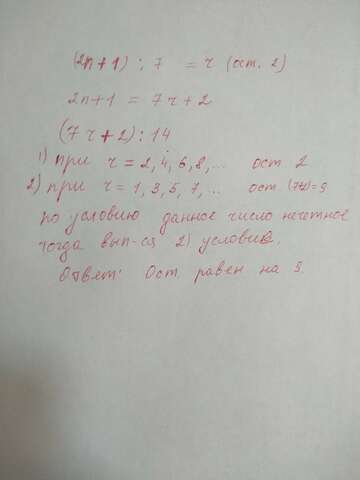 (2n+1) : 7 = r (ост. 2)
2n+1 = 7r+2
(7r+2) : 14
1) при r = 2, 4, 6, 8, ... ост 2
2) при r = 1, 3, 5, 7, ... ост (7+2) = 9
по условию данное число нечетное
тогда вып-ся 2) условие.
Ответ: Ост. равен на 9.